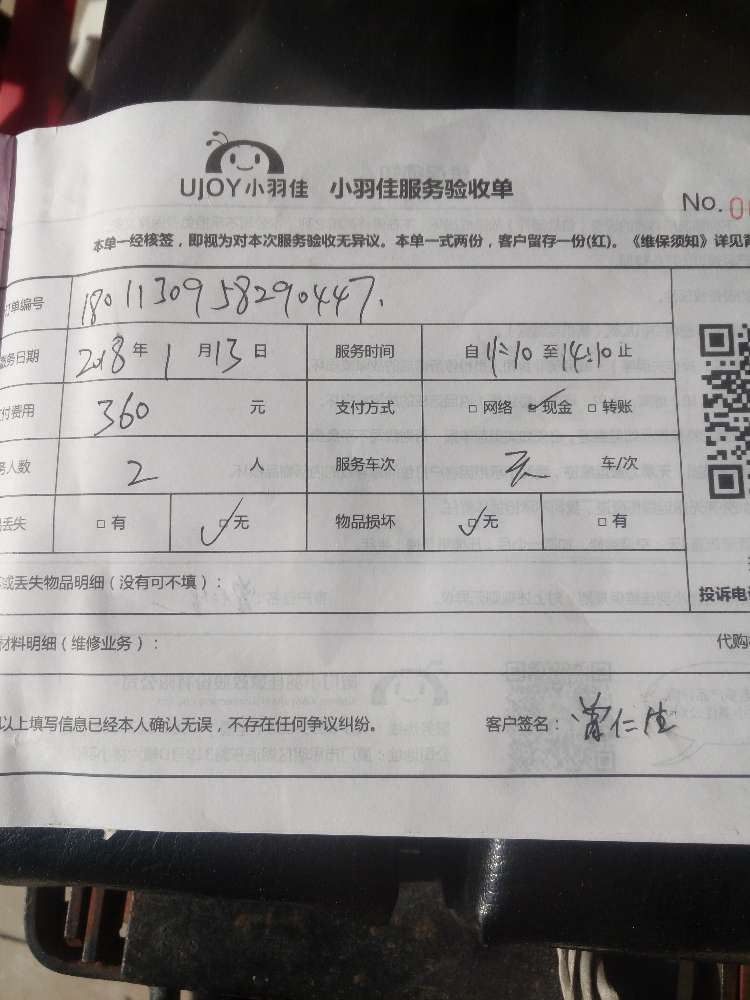 UJOY小羽佳 小羽佳服务验收单
No. 0
本单一经核签，即视为对本次服务验收无异议。本单一式两份，客户留存一份(红)。《维保须知》详见
单编号 1801130958290447.
务日期 2018 年 1 月 13 日 服务时间 自 11:10 至 14:10 止
付费用 360 元 支付方式 □ 网络 ☑ 现金 □ 转账
人数 2 人 服务车次 车/次
丢失 □ 有 ☑ 无 物品损坏 ☑ 无 □ 有
或丢失物品明细（没有可不填）：
投诉电
材料明细（维修业务）：
代购
以上填写信息已经本人确认无误，不存在任何争议纠纷。 客户签名： 仁